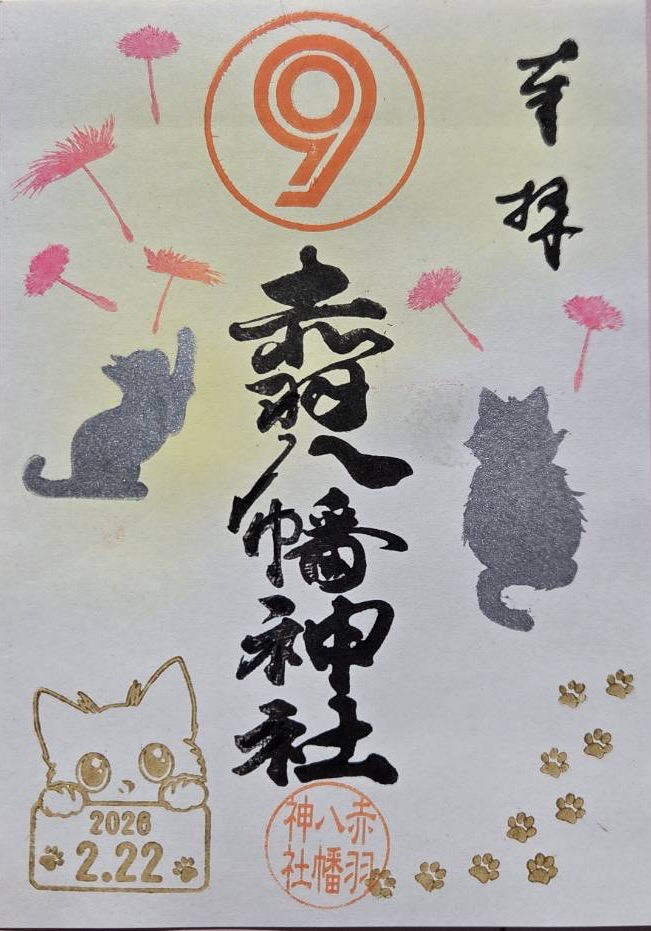 奉拝
9
赤羽八幡神社
赤羽
八幡
神社
2026
2.22